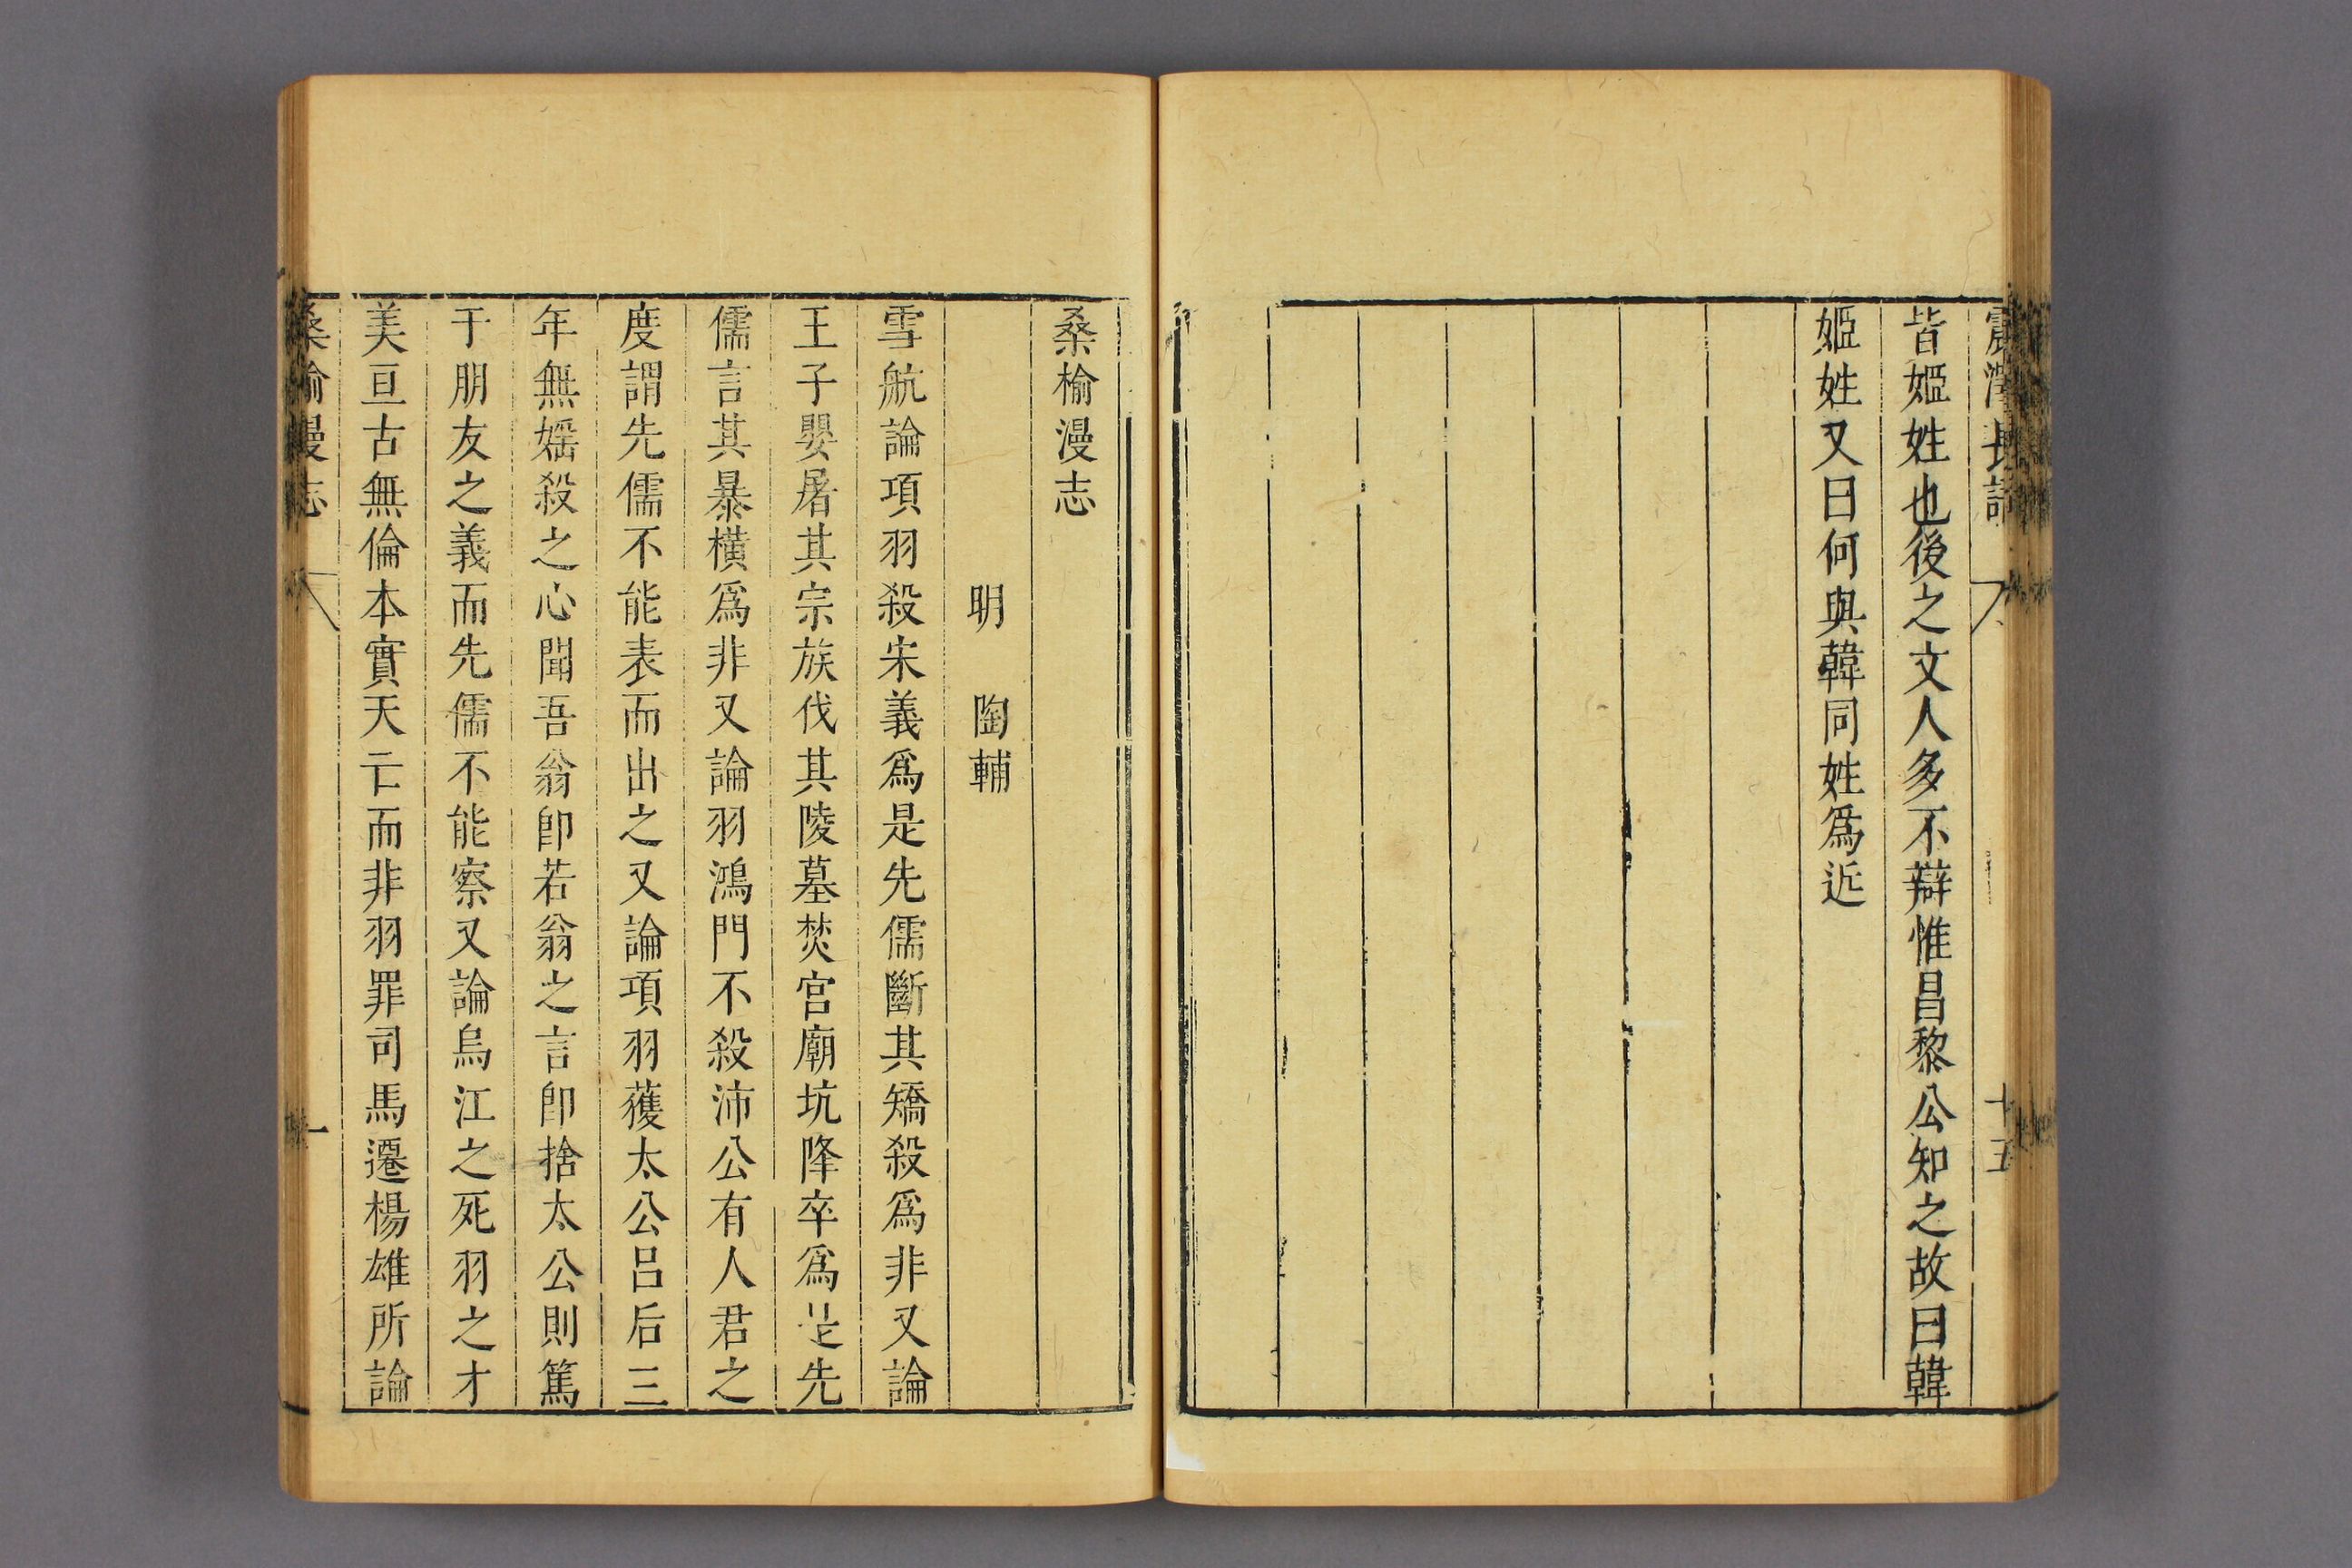 震澤長語 十五
皆姬姓也後之文人多不辯惟昌黎公知之故曰韓
姬姓又曰何與韓同姓爲近
桑榆漫志
明 陶輔
雪航論項羽殺宋義爲是先儒斷其矯殺爲非又論
王子嬰屠其宗族伐其陵墓焚宮廟坑降卒爲是先
儒言其暴橫爲非又論羽鴻門不殺沛公有人君之
度謂先儒不能表而出之又論項羽獲太公呂后三
年無婬殺之心聞吾翁卽若翁之言卽捨太公則篤
于朋友之義而先儒不能察又論烏江之死羽之才
美亘古無倫本實天亡而非羽罪司馬遷楊雄所論
桑榆漫志 一